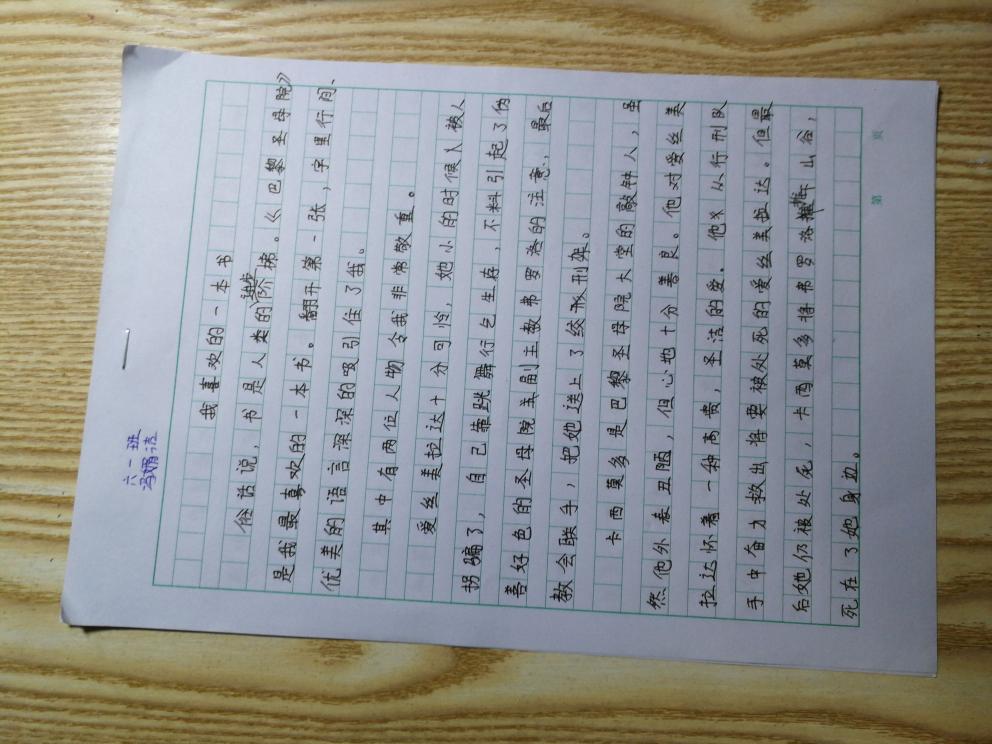 六一班
我喜欢的一本书
俗话说，书是人类的进步阶梯。《巴黎圣母院》
是我最喜欢的一本书。翻开第一张，字里行间、
优美的语言深深的吸引住了我。
其中有两位人物令我非常敬重。
爱丝美拉达十分可怜，她小的时候人被人
拐骗了，自己靠跳舞行乞生存，不料引起了伪
善好色的圣母院副主教弗罗洛的注意，最后
教会联手，把她送上了绞刑架。
卡西莫多是巴黎圣母院大堂的敲钟人，虽
然他外表丑陋，但心地十分善良。他对爱丝美
拉达怀着一种高贵，圣洁的爱。他从行刑队
手中奋力救出将要被处死的爱丝美拉达。但最
后她仍被处死，卡西莫多将弗罗洛摔下山谷，
死在了她身边。
第 页